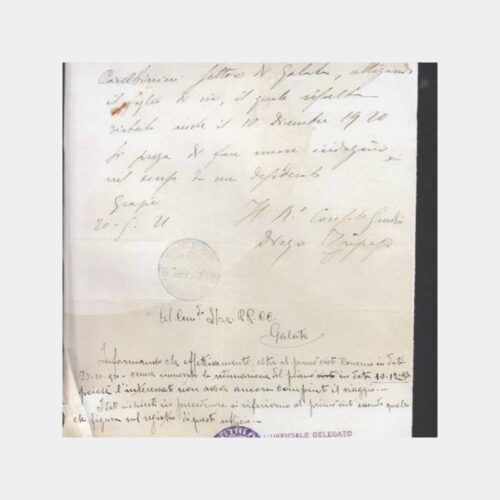 Carabinieri settore di Galata, allegando
il foglio di via, il quale risulta
vistato anche il 10 dicembre 1920
Si prega di fare nuove indagini
nel senso da me desiderato
Grazie
20-5-21 Il R.º Console Giudice
Diego
Al Com.do Staz. RR CC.
Galata
Informando che effettivamente, oltre al primo visto concesso in data
23-10-920 venne la rinnovazione del primo visto in data 10-12-920
poiché l'interessato non aveva ancora compiuto il viaggio.
I dati richiesti in precedenza si riferivano al primo visto essendo quello
che figura sul registro di questo ufficio.
L'UFFICIALE DELEGATO